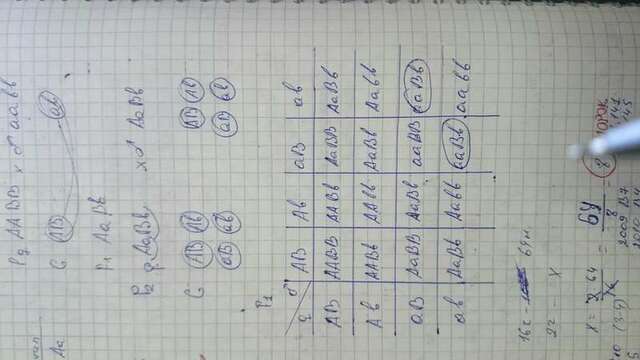 P ♀ AABB x ♂ aabb
G AB ab
F₁ AaBb
P₂ ♀ AaBb x ♂ AaBb
G AB Ab AB Ab
aB ab aB ab
F₂
♀ ♂ AB Ab aB ab
AB AABB AABb AaBB AaBb
Ab AABb AAbb AaBb Aabb
aB AaBB AaBb aaBB aaBb
ab AaBb Aabb aaBb aabb
16г - 64н
2г - x
x = 2 64 / 16 = 64 / 8 = 8
2009 В7